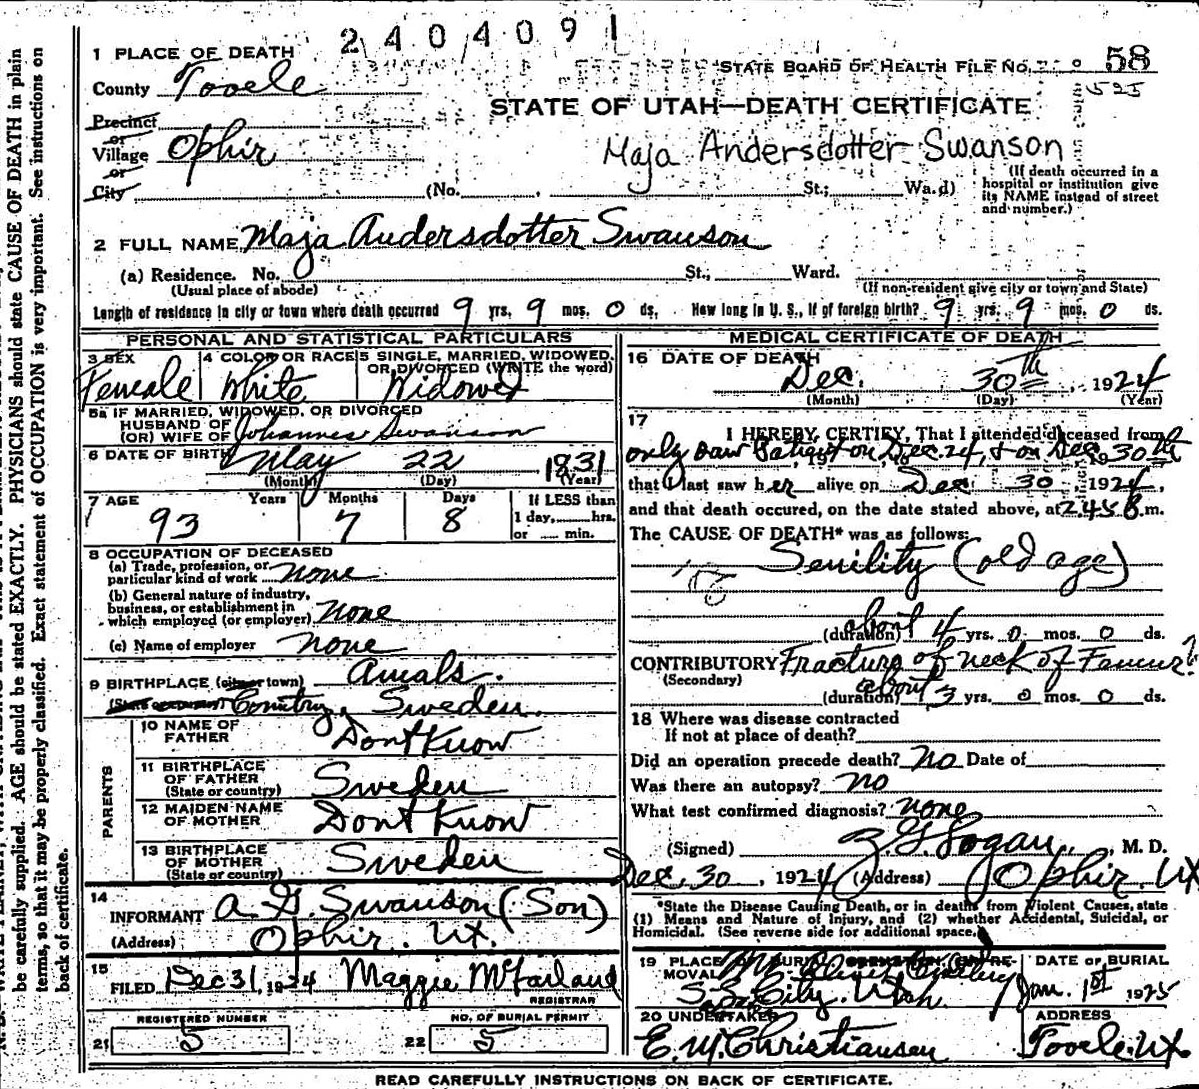 2404091
1 PLACE OF DEATH
STATE BOARD OF HEALTH FILE NO. 58
525
County Tooele
STATE OF UTAH—DEATH CERTIFICATE
Precinct
or
Village Ophir
Maja Andersdotter Swanson
or
City (No. St.; Wa.d)
(If death occurred in a hospital or institution give its NAME instead of street and number.)
2 FULL NAME Maja Andersdotter Swanson
(a) Residence. No. St.; Ward.
(Usual place of abode) (If non-resident give city or town and State)
Length of residence in city or town where death occurred 9 yrs. 9 mos. 0 ds. How long in U. S., if of foreign birth? 9 yrs. 9 mos. 0 ds.
PERSONAL AND STATISTICAL PARTICULARS
3 SEX
Female
4 COLOR OR RACE
White
5 SINGLE, MARRIED, WIDOWED,
OR DIVORCED (WRITE the word)
Widowed
5a IF MARRIED, WIDOWED, OR DIVORCED
HUSBAND OF
(OR) WIFE OF Johannes Swanson
6 DATE OF BIRTH May 22 1831
(Month) (Day) (Year)
7 AGE Years Months Days
93 7 8
If LESS than
1 day, hrs.
or min.
8 OCCUPATION OF DECEASED
(a) Trade, profession, or
particular kind of work none
(b) General nature of industry,
business, or establishment in
which employed (or employer) none
(c) Name of employer none
9 BIRTHPLACE (city or town) Amals.
Country, Sweden.
PARENTS
10 NAME OF
FATHER Dont Know
11 BIRTHPLACE
OF FATHER
(State or country) Sweden
12 MAIDEN NAME
OF MOTHER Dont Know
13 BIRTHPLACE
OF MOTHER
(State or country) Sweden
14
INFORMANT A. G. Swanson (Son)
(Address) Ophir. Ut.
15
FILED Dec 31, 1924 Maggie McFarland
REGISTRAR
REGISTERED NUMBER NO. OF BURIAL PERMIT
21 5 22 5
MEDICAL CERTIFICATE OF DEATH
16 DATE OF DEATH
Dec. 30th, 1924
(Month) (Day) (Year)
17
I HEREBY CERTIFY, That I attended deceased from
only saw Patient on Dec. 24, & on Dec 30th
that I last saw her alive on Dec 30 1924,
and that death occured, on the date stated above, at 2.45 P.m.
The CAUSE OF DEATH* was as follows:
Senility (old age)
about
(duration) 4 yrs. 0 mos. 0 ds.
CONTRIBUTORY Fracture of neck of Femur?
(Secondary)
about
(duration) 3 yrs. 0 mos. 0 ds.
18 Where was disease contracted
If not at place of death?
Did an operation precede death? No Date of
Was there an autopsy? no
What test confirmed diagnosis? none
(Signed) Logan, M. D.
Dec. 30, 1924 (Address) Ophir. Ut
*State the Disease Causing Death, or in deaths from Violent Causes, state
(1) Means and Nature of Injury, and (2) whether Accidental, Suicidal, or
Homicidal. (See reverse side for additional space.)
19 PLACE OF BURIAL, CREMATION OR RE-
MOVAL Mt. Olivet Cemetery
City. Utah
DATE OF BURIAL
Jan. 1st 1925
20 UNDERTAKER
E. M. Christiansen
ADDRESS
Tooele. Ut.
READ CAREFULLY INSTRUCTIONS ON BACK OF CERTIFICATE.
be carefully supplied. AGE should be stated EXACTLY. PHYSICIANS should state CAUSE OF DEATH in plain
terms, so that it may be properly classified. Exact statement of OCCUPATION is very important. See instructions on
back of certificate.